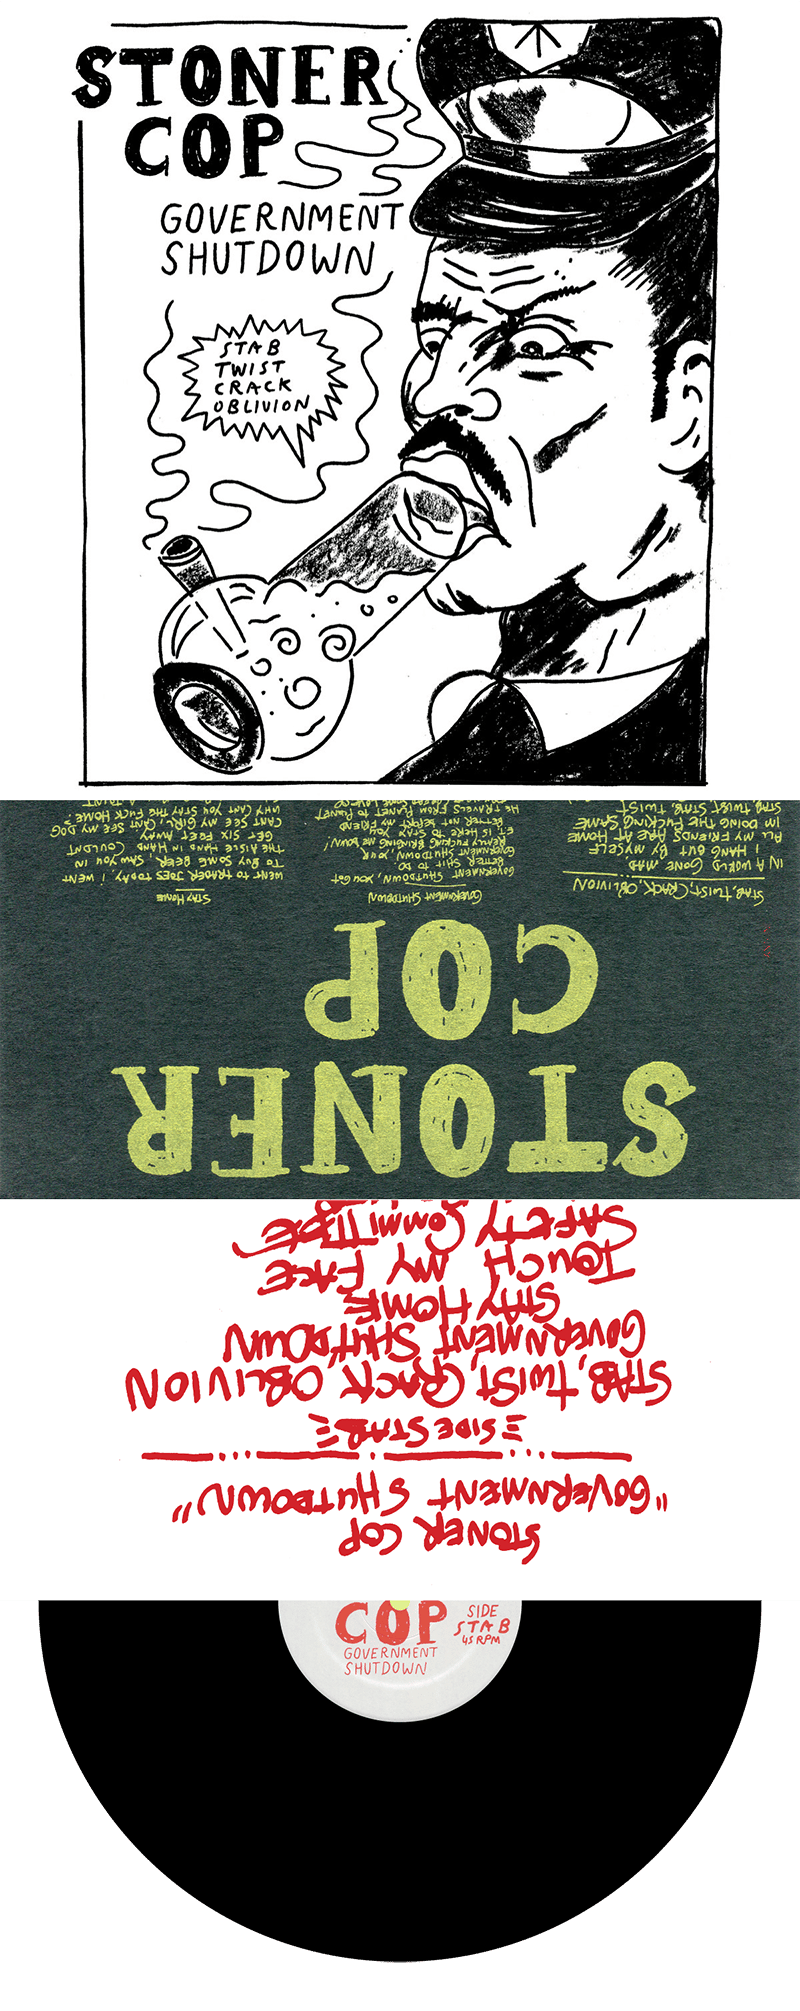 STONER
COP
GOVERNMENT
SHUTDOWN
STAB
TWIST
CRACK
OBLIVION
STONER
COP
STAB, TWIST, CRACK, OBLIVION
IN A WORLD GONE MAD
I HANG OUT BY MYSELF
ALL MY FRIENDS ARE AT HOME
IM DOING THE FUCKING SAME
STAB, TWIST, STAB, TWIST
GOVERNMENT SHUTDOWN
GOVERNMENT SHUTDOWN, YOU GOT
BETTER SHIT TO DO
GOVERNMENT SHUTDOWN, YOUR
REALLY FUCKING BRINGING ME DOWN!
E.T. IS HERE TO STAY
BETTER NOT BEEN MY FRIEND
HE TRAVELS FROM PLANET TO PLANET
SOME LOVE
STAY HOME
WENT TO TRADER JOES TODAY, I WENT
TO BUY SOME BEER, SAW YOU IN
THE AISLE HAND IN HAND COULDNT
GET SIX FEET AWAY
CANT SEE MY GIRL, CANT SEE MY DOG
WHY CANT YOU STAY THE FUCK HOME?
STONER COP
"GOVERNMENT SHUTDOWN"
SIDE STAB
STAB, TWIST, CRACK OBLIVION
GOVERNMENT SHUTDOWN
STAY HOME
TOUCH MY FACE
SAFETY COMMITTEE
COP
SIDE
STAB
45 RPM
GOVERNMENT
SHUTDOWN